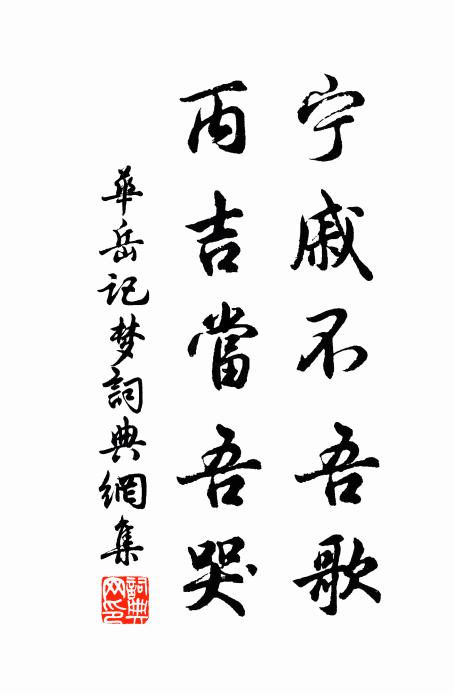 宁戚不吾歌
丙吉當吾哭
華岳记梦詞典網集
詞典网印